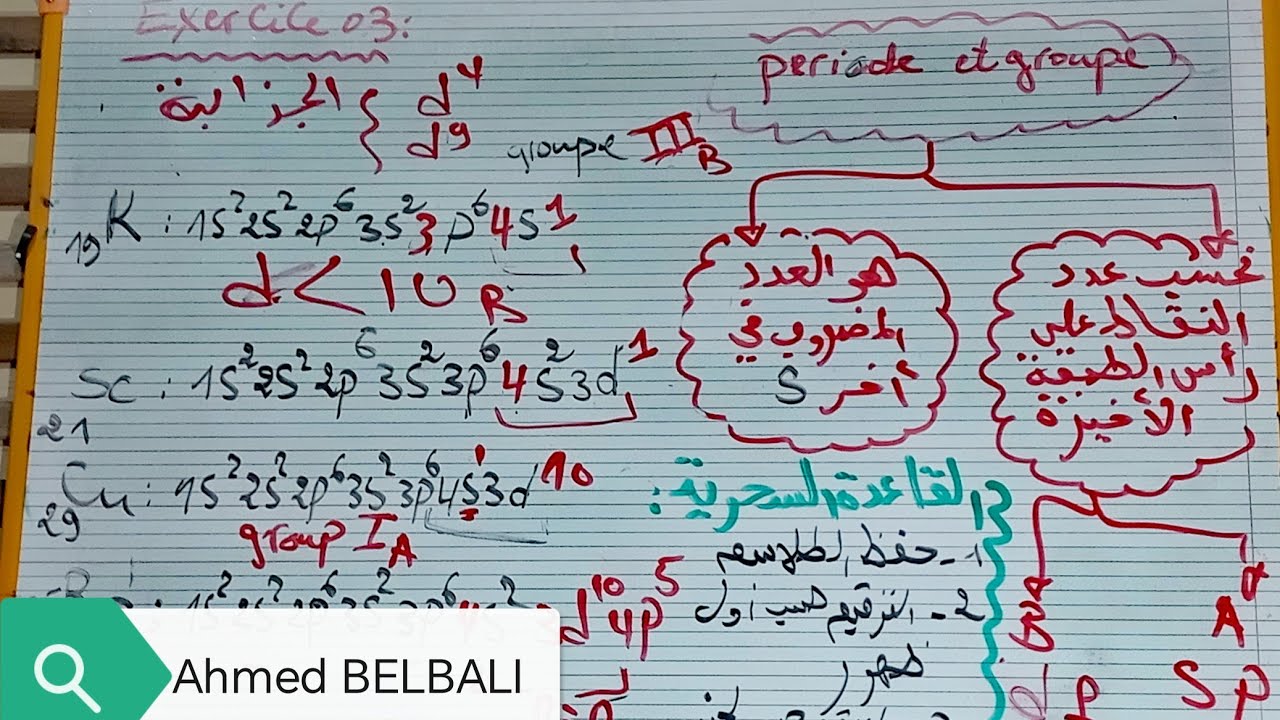 Exercice 03:
الجزائرية { d⁴
d⁹
groupe III_B
periode et groupe
₁₉K : 1S² 2S² 2p⁶ 3S² 3p⁶ 4S¹
d < 10
B
₂₁Sc : 1S² 2S² 2p⁶ 3S² 3p⁶ 4S² 3d¹
₂₉Cu : 1S² 2S² 2p⁶ 3S² 3p⁶ 4S¹ 3d¹⁰
group I_A
3d¹⁰ 4p⁵
هو العدد
المضروب في
أخر S
نحسب عدد
النقاط على
رأس الطبقة
الأخيرة
القاعدة السحرية :
1- حفظ الطلاسم
2- الترقيم حسب أول
ظهور
B
A
d f
S p
Ahmed BELBALI